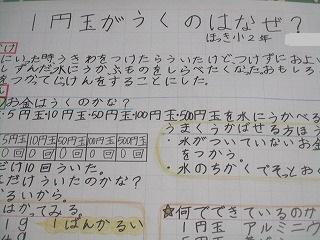 1円玉がうくのはなぜ?
ほっき小2年
け
にいった時うきわをつけたらういたけど、つけずにおよい
しずんだ。水にうかぶものをしらべたくなった。おもしろ
をつかってじっけんをすることにした。
お金はうくのかな?
・5円玉・10円玉・50円玉・100円玉・500円玉を水にうかべる
5円玉 10円玉 50円玉 100円玉 500円玉
0回 0回 0回 0回 0回
だけ10回ういた。
だけういたのかな?
るいから。
はかってみる。
1g 1ばんかるい
うまくうかばせる方ほう
・水がついていないお金
をつかう。
・水のちかくでそっとおく
★何でできているのか
1円玉 アルミニウ